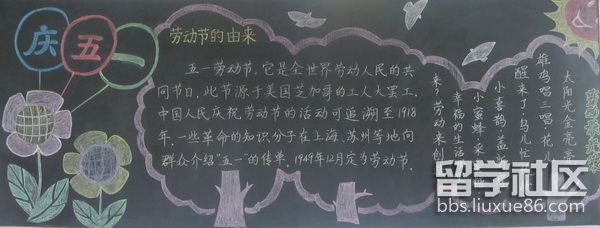 庆五一
劳动节的由来
五一劳动节，它是全世界劳动人民的共
同节日，此节源于美国芝加哥的工人大罢工，
中国人民庆祝劳动节的活动可追溯至1918
年。一些革命的知识分子在上海、苏州等地向
群众介绍“五一”的传单，1949年12月定为劳动节。
太阳光金亮亮
雄鸡唱三唱 花儿
醒来了，鸟儿忙
小喜鹊，盖新
小蜜蜂，采
幸福的生活
来？劳动来创
留学社区
bbs.liuxue86.com